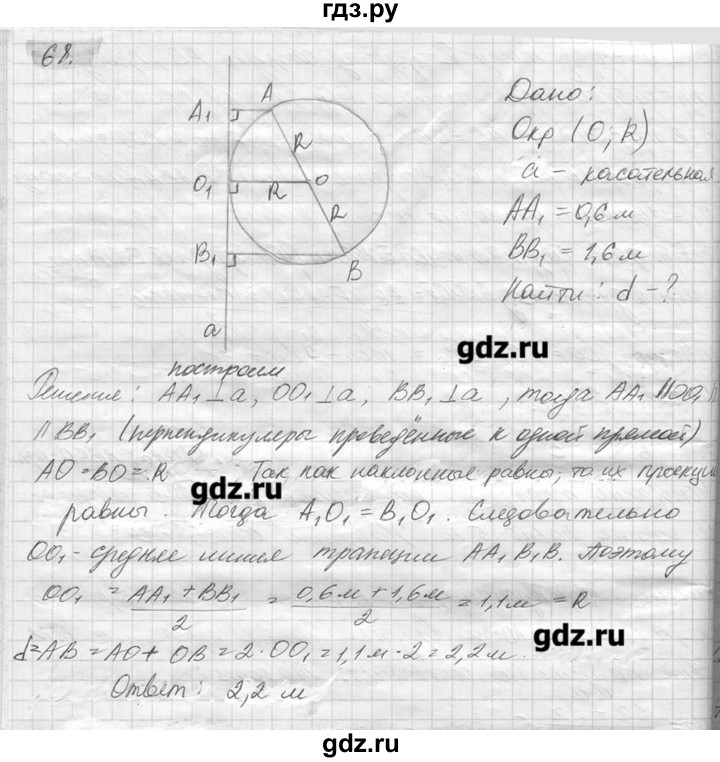 гдз.ру
68.
A₁ A
R
O₁ R O
R
B₁ B
a
Дано:
Окр (O; R)
a - касательная
AA₁ = 0,6 м
BB₁ = 1,6 м
Найти: d - ?
gdz.ru
построим
Решение: AA₁ ⊥ a, OO₁ ⊥ a, BB₁ ⊥ a, тогда AA₁ || OO₁ ||
|| BB₁ (перпендикуляры проведённые к одной прямой)
AO = BO = R Так как наклонные равны, то их проекции
gdz.ru
равны. Тогда A₁O₁ = B₁O₁. Следовательно
OO₁ - средняя линия трапеции AA₁B₁B. Поэтому
OO₁ = AA₁ + BB₁ / 2 = 0,6м + 1,6м / 2 = 1,1м = R
gdz.ru
d = AB = AO + OB = 2·OO₁ = 1,1м·2 = 2,2м.
Ответ: 2,2 м
gdz.ru